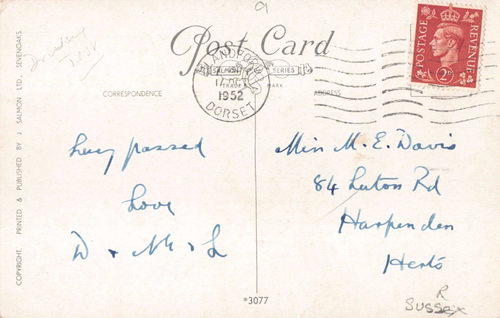 9
Post Card
SALMON SERIES
TRADE MARK
CORRESPONDENCE
ADDRESS
BLANDFORD
DEC
1952
DORSET
POSTAGE
REVENUE
2D
Lucy passed
Love
D + M + L
Miss M. E. Davis
84 Luton Rd
Harpenden
Herts
R
SUSSEX
*3077
COPYRIGHT. PRINTED & PUBLISHED BY J. SALMON LTD., SEVENOAKS.